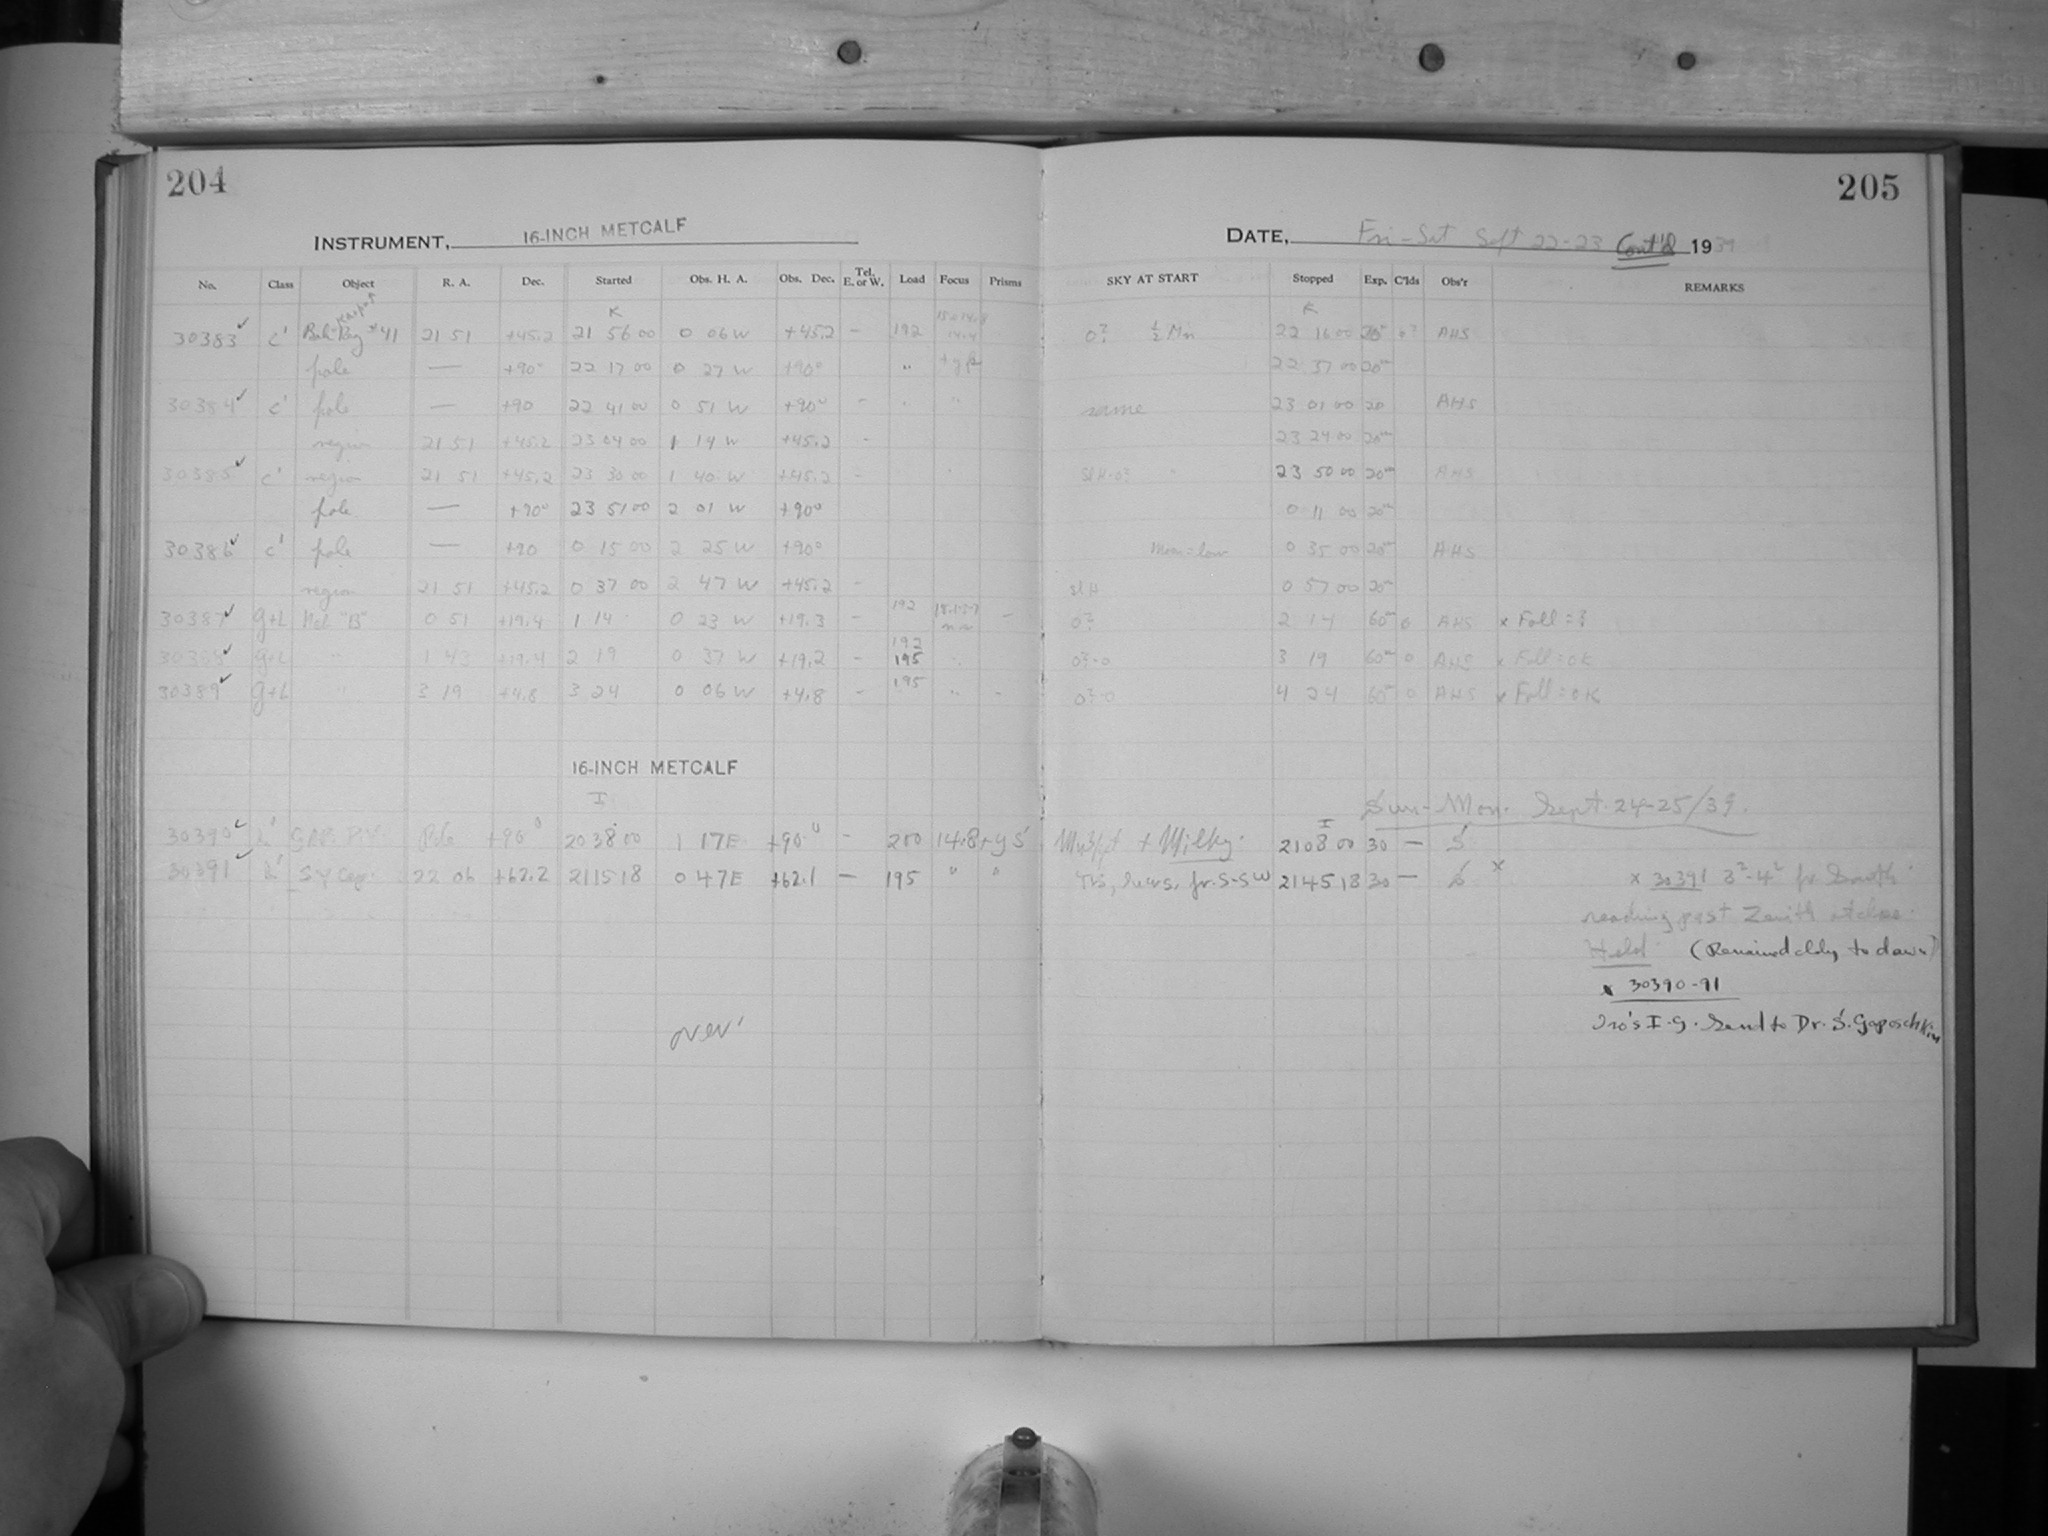 204
205
INSTRUMENT, 16-INCH METCALF
DATE, Fri-Sat Sept 22-23 Cont'd 1939
No. Class Object R. A. Dec. Started Obs. H. A. Obs. Dec. Tel. E. or W. Load Focus Prisms SKY AT START Stopped Exp. C'lds Obs'r REMARKS
K K
30383 ✓ c' #41 21 51 +45.2 21 56 00 0 06 W +45.2 - 192 0? ½ Mn 22 16 00 20m 0? AHS
pole — +90° 22 17 00 0 27 W +90° " 22 37 00 20m
30384 ✓ c' pole — +90 22 41 00 0 51 W +90° - " " same 23 01 00 20 AHS
region 21 51 +45.2 23 04 00 1 14 W +45.2 - 23 24 00 20m
30385 ✓ c' region 21 51 +45.2 23 30 00 1 40 W +45.2 - sl H-0? " 23 50 00 20m AHS
pole — +90° 23 51 00 2 01 W +90° 0 11 00 20m
30386 ✓ c' pole — +90 0 15 00 2 25 W +90° Moon=low 0 35 00 20m AHS
region 21 51 +45.2 0 37 00 2 47 W +45.2 - sl H 0 57 00 20m
30387 ✓ g+L "B" 0 51 +19.4 1 14 0 23 W +19.3 - 192 - 0? 2 14 60m 0 AHS x Foll=?
30388 ✓ g+L " 1 43 +19.4 2 19 0 37 W +19.2 - 192 195 " 0?-0 3 19 60m 0 AHS x Foll=OK
30389 ✓ g+L " 3 19 +4.8 3 24 0 06 W +4.8 - 195 " - 0?-0 4 24 60m 0 AHS x Foll=OK
16-INCH METCALF
I
Sun-Mon. Sept. 24-25/39.
I
30390 ✓ Pole +90° 20 38 00 1 17E +90° - 200 14.8 + Milky. 2108 00 30 — S
30391 ✓ SY Cep. 22 06 +62.2 21 15 18 0 47E +62.1 — 195 " " fr. S-SW 21 45 18 30 — S x x 30391 3²-4² fr South
reading past Zenith at close.
Held. (Remained cldy to dawn)
x 30390-91
Two's I.G. Send to Dr. S. Gaposchkin
over